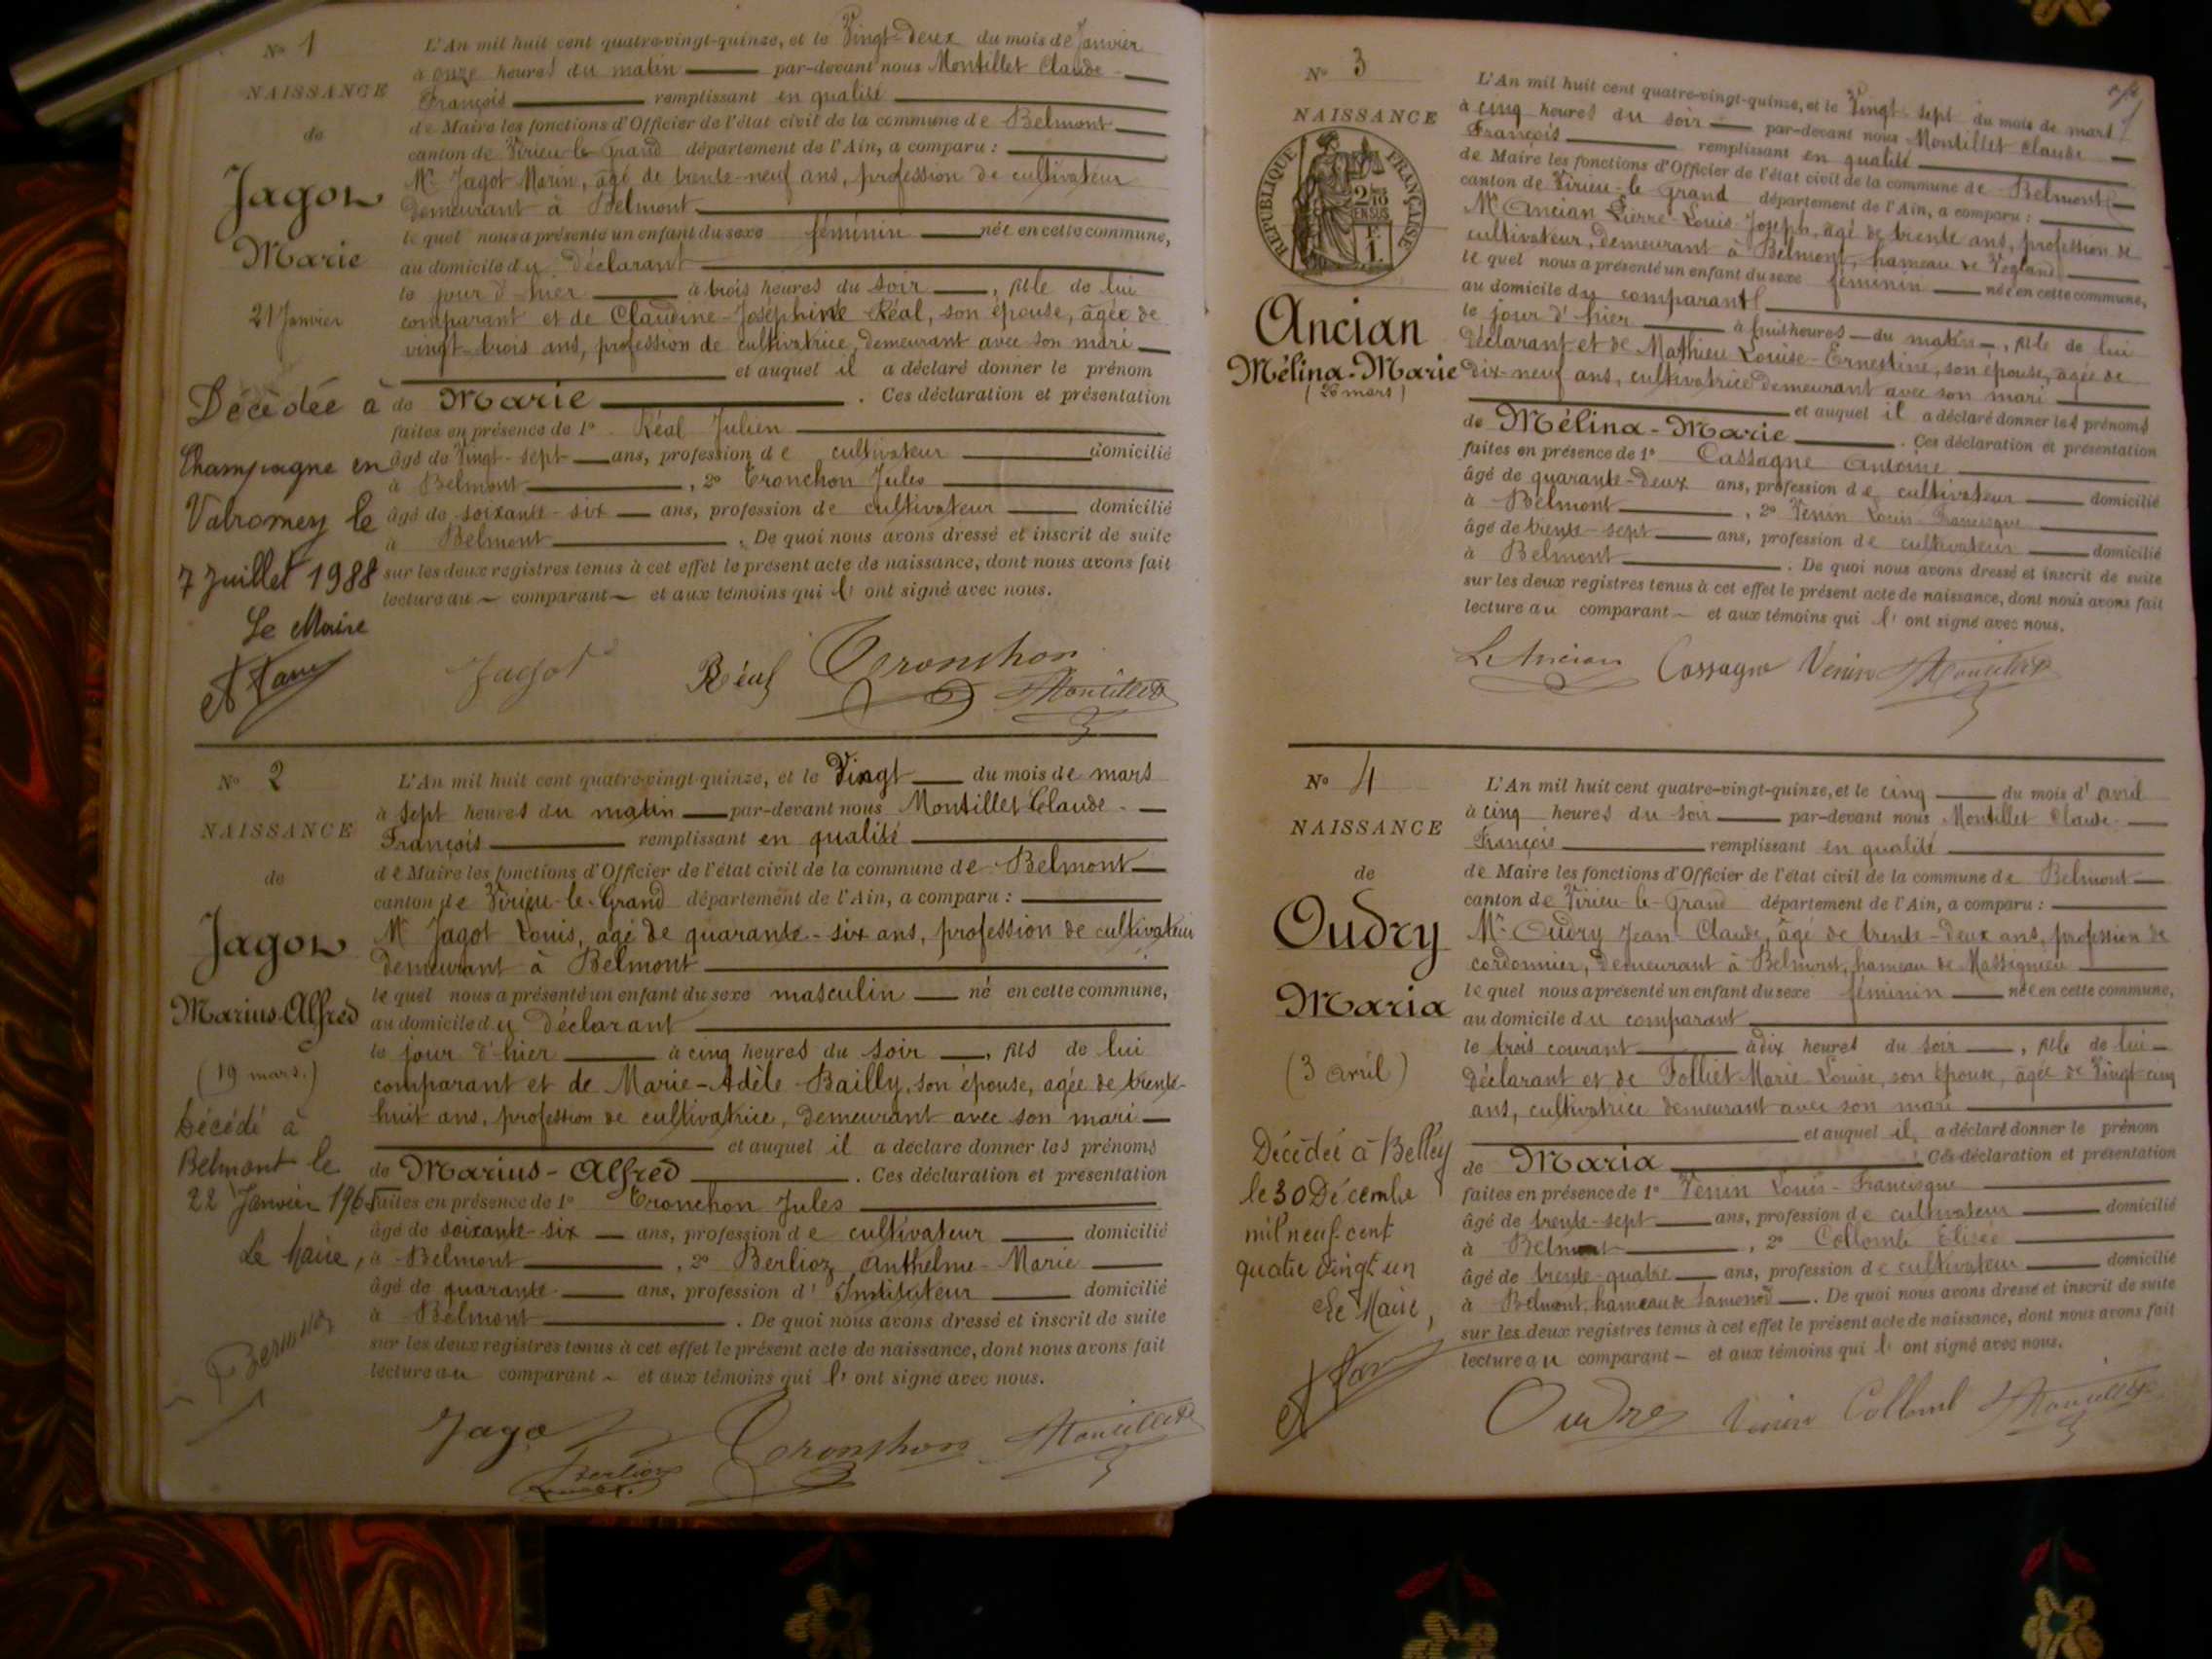 Nº 1
NAISSANCE
de
Jagot
Marie
21 Janvier
Décédée à
Champagne en
Valromey le
7 Juillet 1988
Le Maire
L'An mil huit cent quatre-vingt-quinze, et le Vingt-deux du mois de Janvier
à onze heures du matin par-devant nous Montillet Claude
François remplissant en qualité
de Maire les fonctions d'Officier de l'état civil de la commune de Belmont
canton de Virieu-le-Grand département de l'Ain, a comparu :
Mr Jagot Marin, âgé de trente-neuf ans, profession de cultivateur
demeurant à Belmont
le quel nous a présenté un enfant du sexe féminin née en cette commune,
au domicile du déclarant
le jour d'hier à trois heures du soir, fille de lui
comparant et de Claudine-Joséphine Réal, son épouse, âgée de
vingt-trois ans, profession de cultivatrice, demeurant avec son mari
et auquel il a déclaré donner le prénom
de Marie. Ces déclaration et présentation
faites en présence de 1º Réal Julien
âgé de Vingt-sept ans, profession de cultivateur domicilié
à Belmont, 2º Tronchon Jules
âgé de soixante-six ans, profession de cultivateur domicilié
à Belmont. De quoi nous avons dressé et inscrit de suite
sur les deux registres tenus à cet effet le présent acte de naissance, dont nous avons fait
lecture au comparant et aux témoins qui l' ont signé avec nous.
Jagot Réal Tronchon Montillet
Nº 2
NAISSANCE
de
Jagot
Marius-Alfred
(19 mars.)
Décédé à
Belmont le
22 Janvier 196
Le Maire,
L'An mil huit cent quatre-vingt-quinze, et le Vingt du mois de mars
à sept heures du matin par-devant nous Montillet Claude
François remplissant en qualité
de Maire les fonctions d'Officier de l'état civil de la commune de Belmont
canton de Virieu-le-Grand département de l'Ain, a comparu :
Mr Jagot Louis, âgé de quarante-six ans, profession de cultivateur
demeurant à Belmont
le quel nous a présenté un enfant du sexe masculin né en cette commune,
au domicile du déclarant
le jour d'hier à cinq heures du soir, fils de lui
comparant et de Marie-Adèle Bailly, son épouse, agée de trente-
huit ans, profession de cultivatrice, demeurant avec son mari
et auquel il a déclaré donner les prénoms
de Marius-Alfred. Ces déclaration et présentation
faites en présence de 1º Tronchon Jules
âgé de soixante-six ans, profession de cultivateur domicilié
à Belmont, 2º Berlioz Anthelme-Marie
âgé de quarante ans, profession d' Instituteur domicilié
à Belmont. De quoi nous avons dressé et inscrit de suite
sur les deux registres tenus à cet effet le présent acte de naissance, dont nous avons fait
lecture au comparant et aux témoins qui l' ont signé avec nous.
Jagot Tronchon Montillet
Berlioz
Nº 3
NAISSANCE
RÉPUBLIQUE FRANÇAISE
2/10
EN SUS
1
Ancian
Mélina-Marie
(26 mars)
L'An mil huit cent quatre-vingt-quinze, et le Vingt-sept du mois de mars
à cinq heures du soir par-devant nous Montillet Claude
François remplissant en qualité
de Maire les fonctions d'Officier de l'état civil de la commune de Belmont
canton de Virieu-le-Grand département de l'Ain, a comparu :
Mr Ancian Pierre-Louis-Joseph, âgé de trente ans, profession de
cultivateur, demeurant à Belmont, hameau de
le quel nous a présenté un enfant du sexe féminin née en cette commune,
au domicile du comparant
le jour d'hier à huit heures du matin, fille de lui
déclarant et de Mathieu Louise-Ernestine, son épouse, agée de
dix-neuf ans, cultivatrice demeurant avec son mari
et auquel il a déclaré donner les prénoms
de Mélina-Marie. Ces déclaration et présentation
faites en présence de 1º Cassagne Antoine
âgé de quarante-deux ans, profession de cultivateur domicilié
à Belmont, 2º Venin Louis-Francisque
âgé de trente-sept ans, profession de cultivateur domicilié
à Belmont. De quoi nous avons dressé et inscrit de suite
sur les deux registres tenus à cet effet le présent acte de naissance, dont nous avons fait
lecture au comparant et aux témoins qui l' ont signé avec nous.
L Ancian Cassagne Venin Montillet
Nº 4
NAISSANCE
de
Oudry
Maria
(3 avril)
Décédée à Belley
le 30 Décembre
mil neuf cent
quatre vingt un
Le Maire,
L'An mil huit cent quatre-vingt-quinze, et le cinq du mois d' avril
à cinq heures du soir par-devant nous Montillet Claude
François remplissant en qualité
de Maire les fonctions d'Officier de l'état civil de la commune de Belmont
canton de Virieu-le-Grand département de l'Ain, a comparu :
Mr Oudry Jean-Claude, âgé de trente-deux ans, profession de
cordonnier, demeurant à Belmont, hameau de Massignieu
le quel nous a présenté un enfant du sexe féminin née en cette commune,
au domicile du comparant
le trois courant à dix heures du soir, fille de lui
déclarant et de Folliet Marie-Louise, son épouse, âgée de Vingt-cinq
ans, cultivatrice demeurant avec son mari
et auquel il a déclaré donner le prénom
de Maria. Ces déclaration et présentation
faites en présence de 1º Venin Louis-Francisque
âgé de trente-sept ans, profession de cultivateur domicilié
à Belmont, 2º Collomb Elisée
âgé de trente-quatre ans, profession de cultivateur domicilié
à Belmont, hameau de. De quoi nous avons dressé et inscrit de suite
sur les deux registres tenus à cet effet le présent acte de naissance, dont nous avons fait
lecture au comparant et aux témoins qui l' ont signé avec nous.
Oudry Venin Collomb Montillet